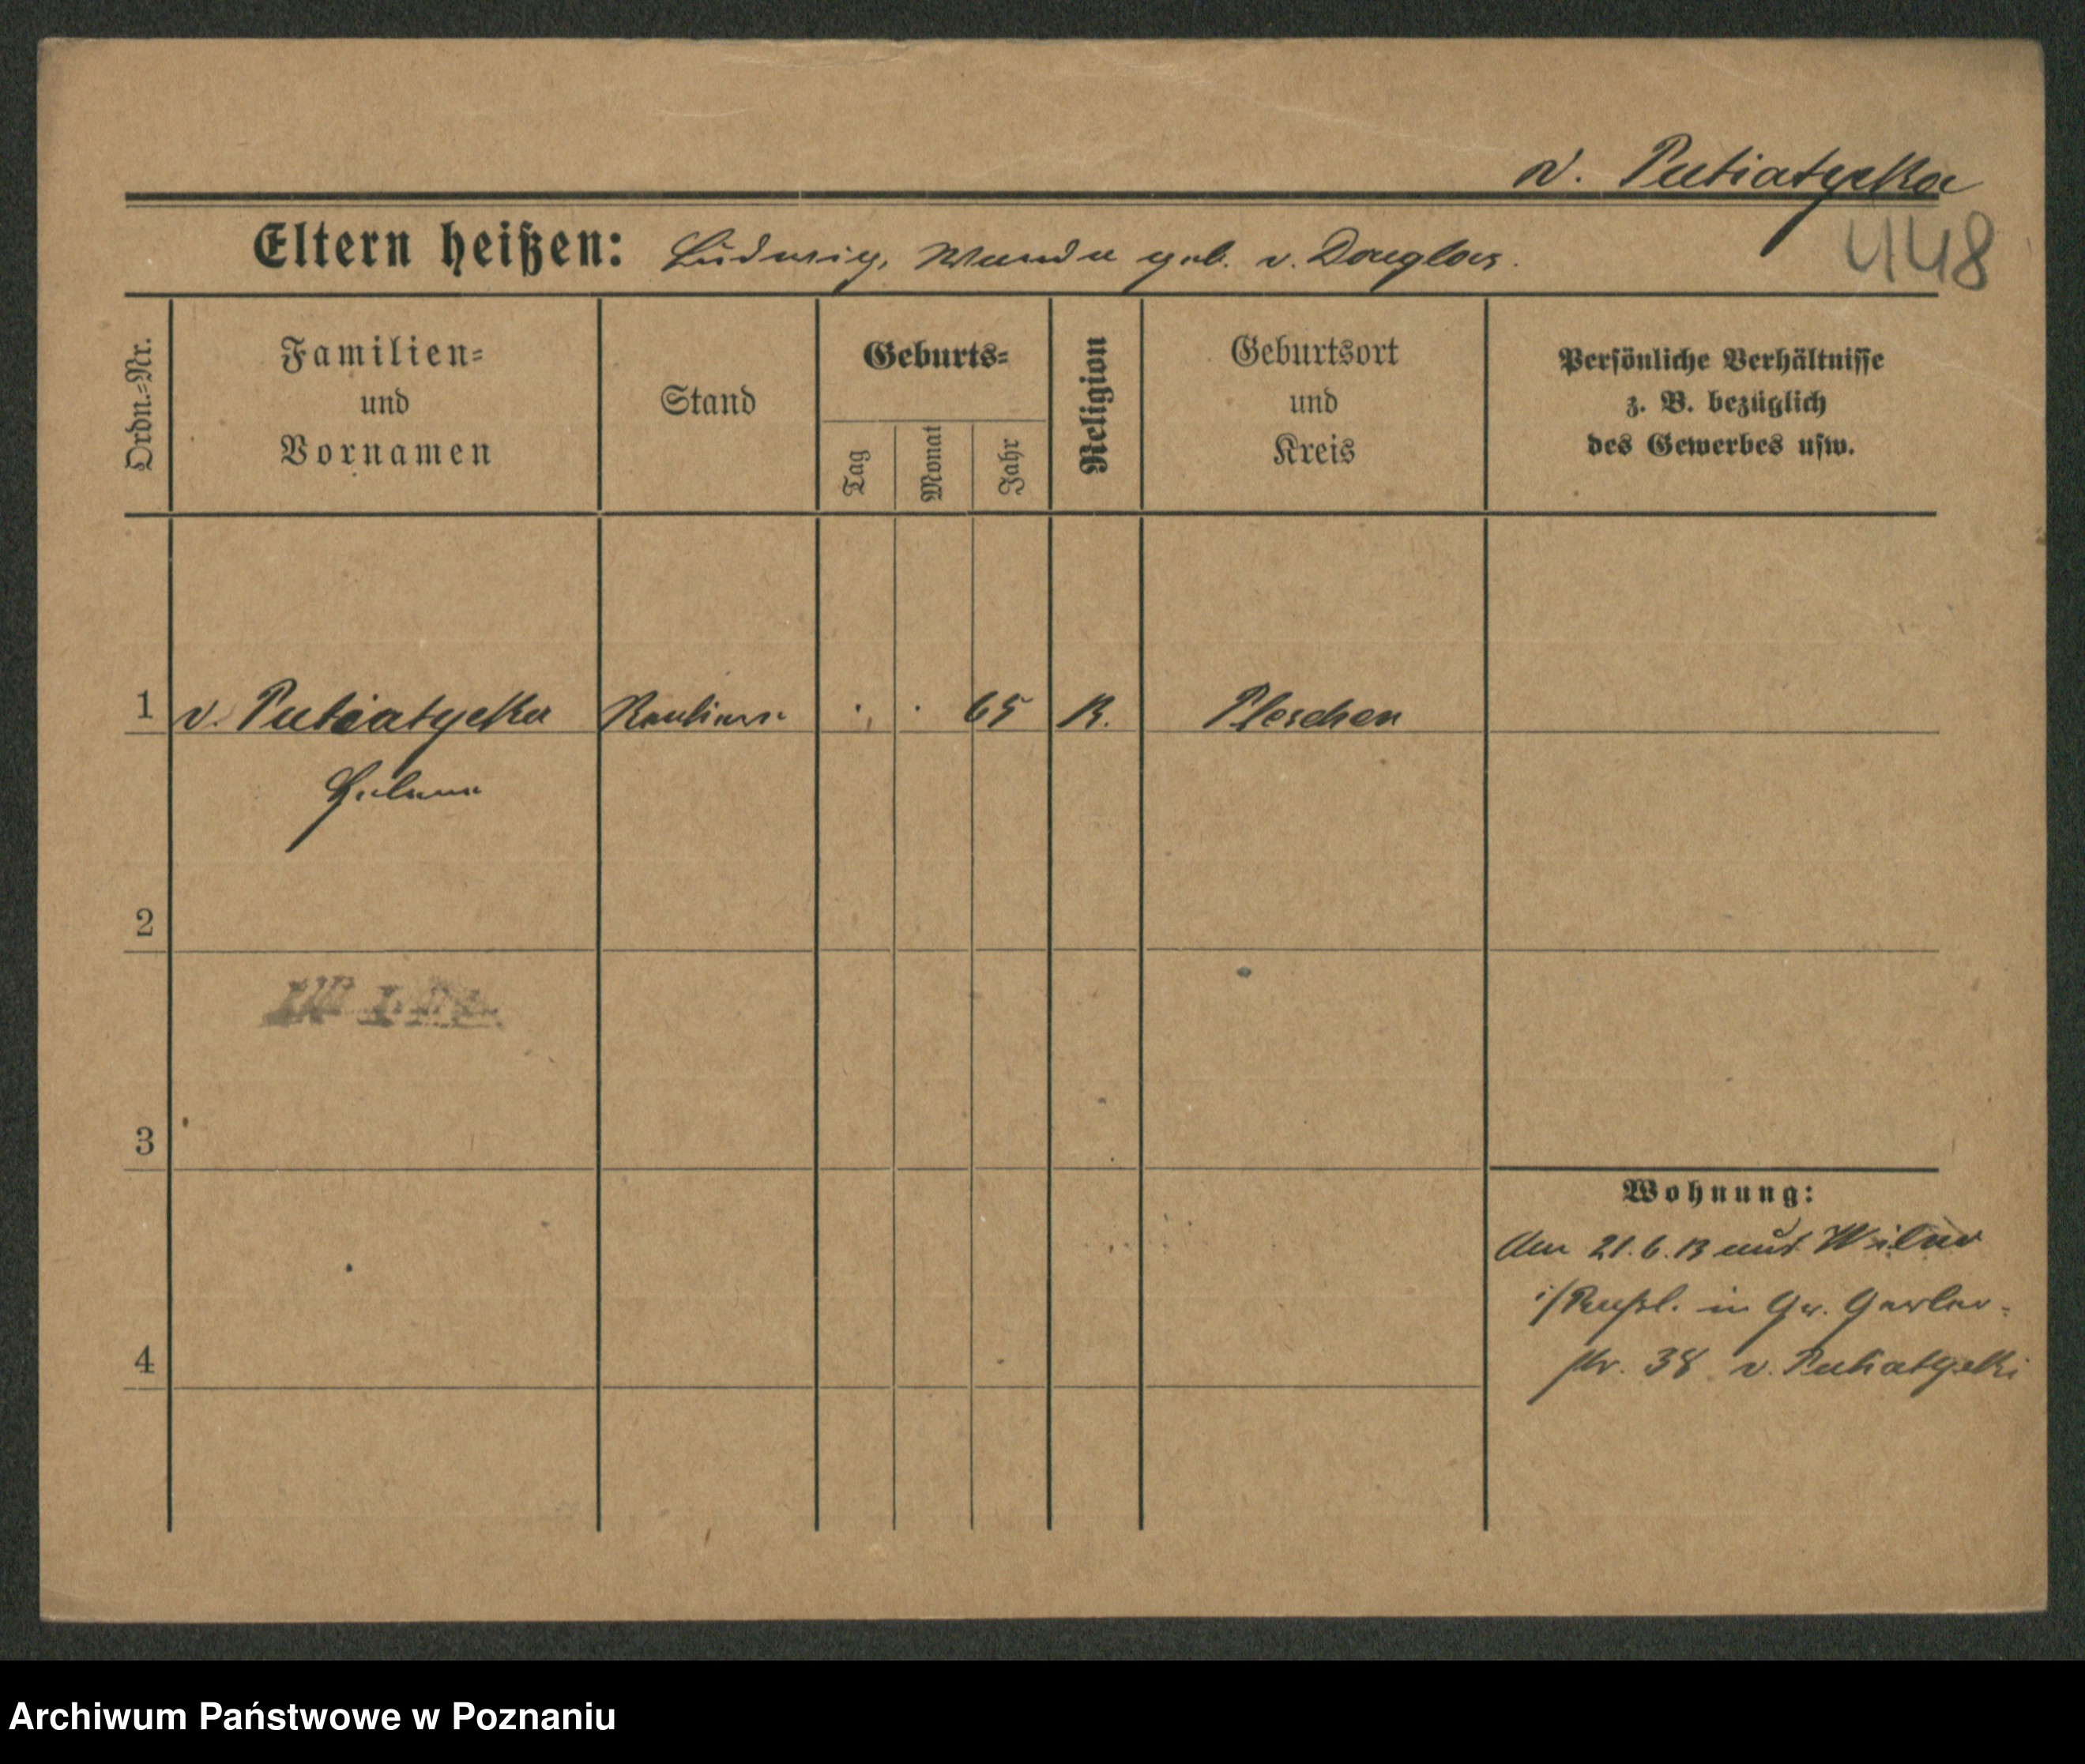 v. Putiatycka
448
Eltern heißen: Ludwig, Wanda geb. v. Douglas.
Ordn.-Nr.
Familien-
und
Vornamen
Stand
Geburts-
Tag
Monat
Jahr
Religion
Geburtsort
und
Kreis
Persönliche Verhältnisse
z. B. bezüglich
des Gewerbes usw.
1 v. Putiatycka 65 K. Pleschen
2
3
4
Wohnung:
Am 21.6.13 aus Wilna
i/Rußl. in Gr. Gerber-
str. 38 v. Putiatycki
Archiwum Państwowe w Poznaniu